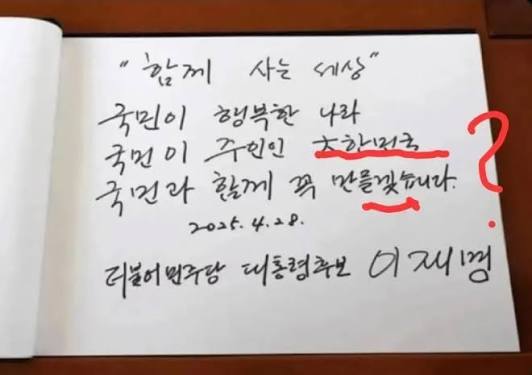 "함께 사는 세상"
국민이 행복한 나라
국민이 주인인 大한민국
국민과 함께 꼭 만들겠습니다.
?
2025.4.28.
더불어민주당 대통령후보 이재명